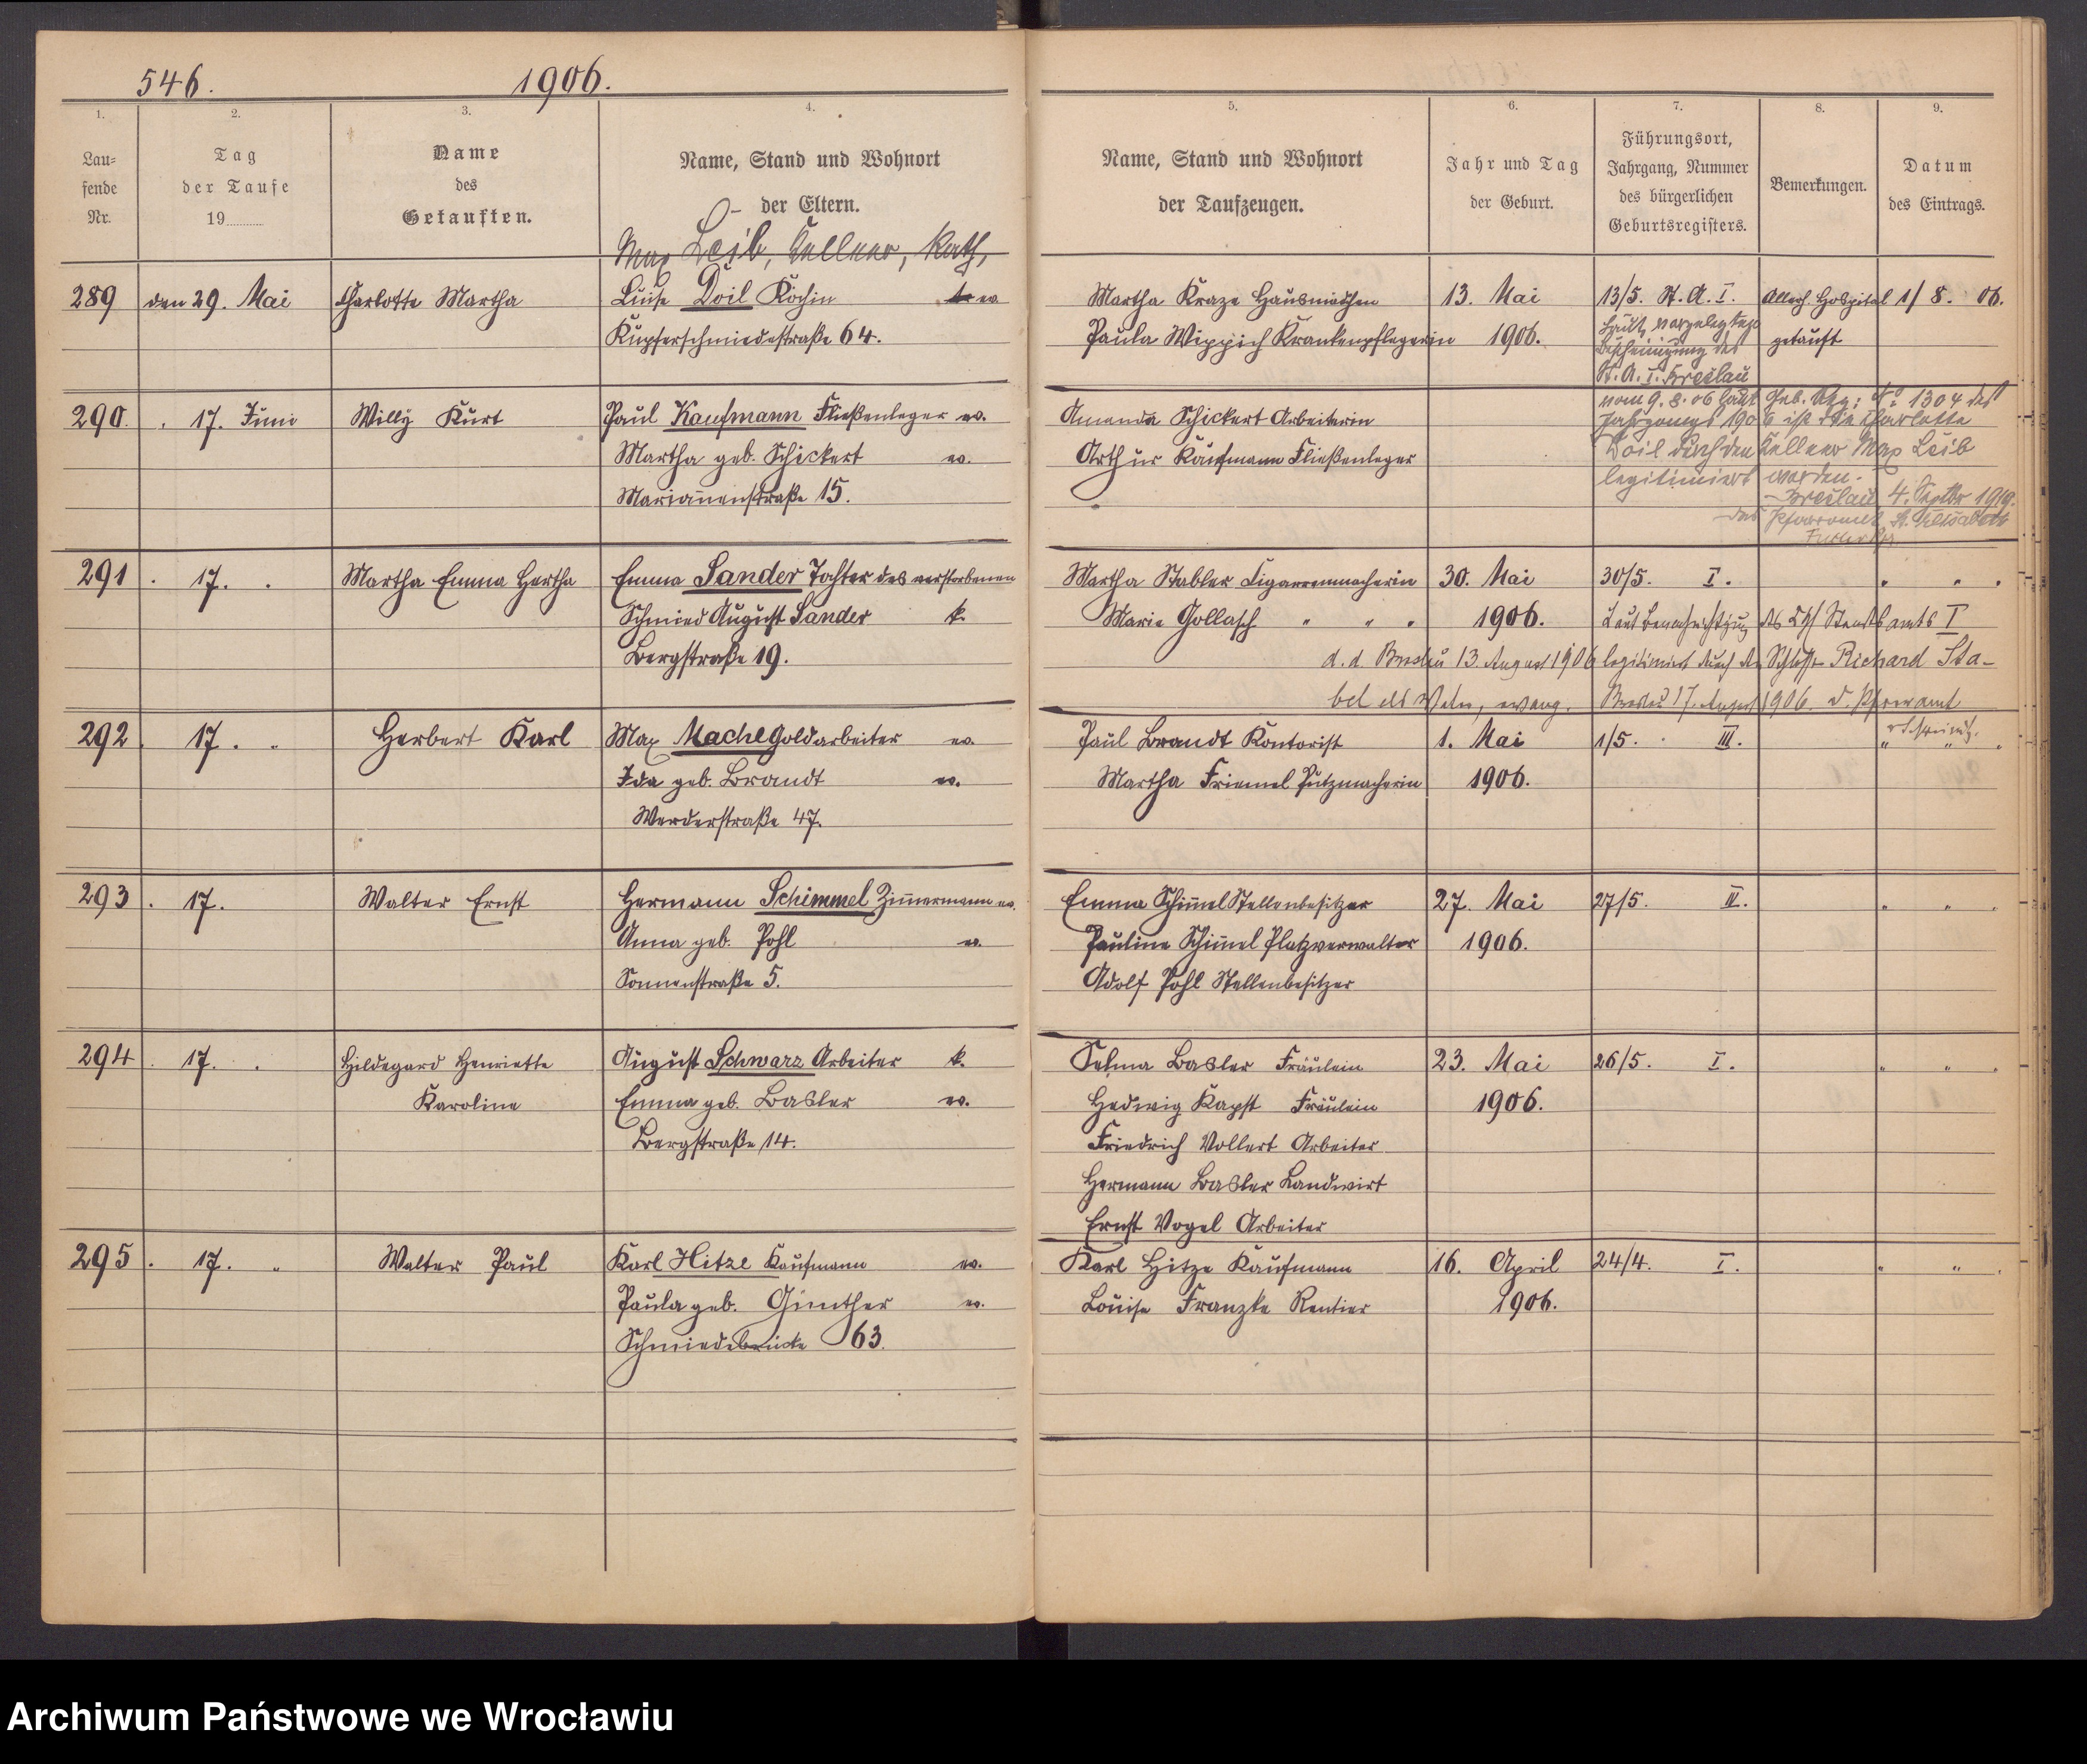 546.
1906.
1.
2.
3.
4.
5.
6.
7.
8.
9.
Lau=
fende
Nr.
Tag
der Taufe
19
Name
des
Getauften.
Name, Stand und Wohnort
der Eltern.
Name, Stand und Wohnort
der Taufzeugen.
Jahr und Tag
der Geburt.
Führungsort,
Jahrgang, Nummer
des bürgerlichen
Geburtsregisters.
Bemerkungen.
Datum
des Eintrags.
Max Leib, Kellner, kath,
289 den 29. Mai Charlotte Martha Luise Doil Köchin ev Martha Kraze Hausmädchen 13. Mai 13/5. St. A. I. Allerh. Hospital 1/8. 06.
Kupferschmiedestraße 64. Paula Wippich Krankenpflegerin 1906. getauft
Laut vorgelegter
Bescheinigung des
St. A. I. Breslau
vom 9. 8. 06 laut Geb. Reg: No 1304 des
Jahrgangs 1906 ist die Charlotte
Doil durch den Kellner Max Leib
legitimiert worden.
Breslau 4. Septbr 1919.
das Pfarramt St. Elisabeth
290. . 17. Juni Willy Kurt Paul Kaufmann Fließenleger ev. Amanda Schickert Arbeiterin
Martha geb. Schickert ev. Arthur Kaufmann Fließenleger
Mariannenstraße 15.
291 . 17. . Martha Emma Hertha Emma Sander Tochter des verstorbenen Martha Stabler Cigarrenmacherin 30. Mai 30/5. I. " " .
Schmied August Sander k. Marie Gollasch " " . 1906. Laut Benachrichtigung des Kgl Standesamts I
Bergstraße 19. d. d. Breslau 13. August 1906 legitimiert durch den Schlosser Richard Sta-
bel als Vater, evang. Breslau 17. August 1906. d. Pfarramt
292 . 17. " Herbert Karl Max Mache Goldarbeiter ev. Paul Brandt Kontorist 1. Mai 1/5. . III. " " .
Ida geb. Brandt ev. Martha Friemel Putzmacherin 1906.
Werderstraße 47.
293 . 17. Walter Ernst Hermann Schimmel Zimmermann ev. Emma Schimmel Stellenbesitzer 27. Mai 27/5. III. " " .
Anna geb. Pohl ev. Pauline Schimmel Platzverwalter 1906.
Sonnenstraße 5. Adolf Pohl Stellenbesitzer
294 . 17. . Hildegard Henriette August Schwarz Arbeiter k. Selma Basler Fräulein 23. Mai 26/5. I. " " .
Karoline Emma geb. Basler ev. Hedwig Kapst Fräulein 1906.
Bergstraße 14. Friedrich Vollert Arbeiter
Hermann Basler Landwirt
Ernst Vogel Arbeiter
295 . 17. " Walter Paul Karl Hitze Kaufmann ev. Karl Hitze Kaufmann 16. April 24/4. I. " " .
Paula geb. Günther ev. Louise Franzke Rentier 1906.
Schmiedebrücke 63.
Archiwum Państwowe we Wrocławiu